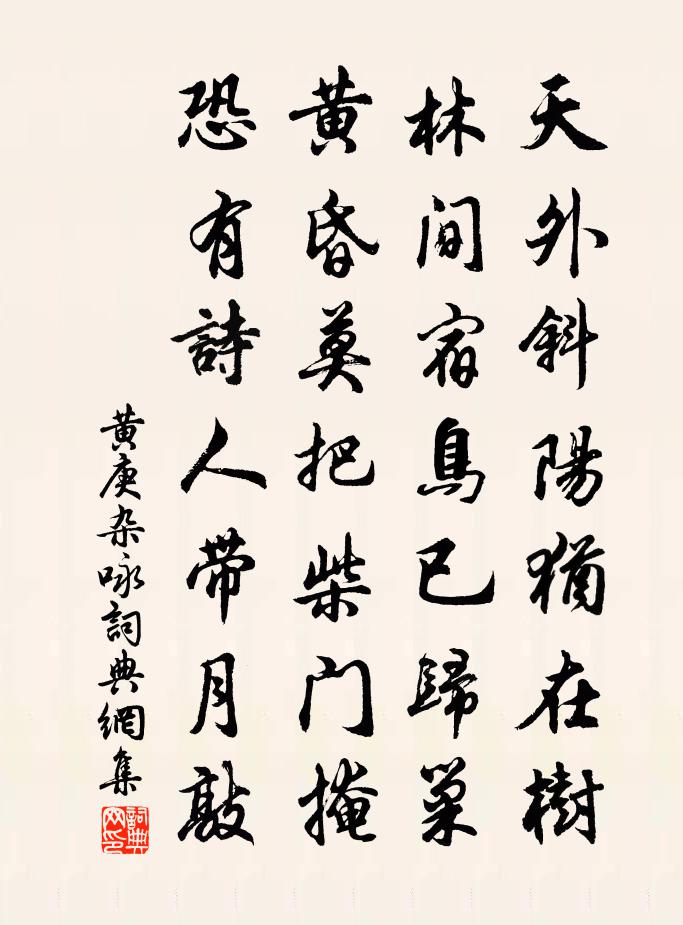 天外斜陽猶在樹
林間宿鳥已歸巢
黃昏莫把柴門掩
恐有詩人帶月敲
黄庚杂咏詞典網集
詞典网印